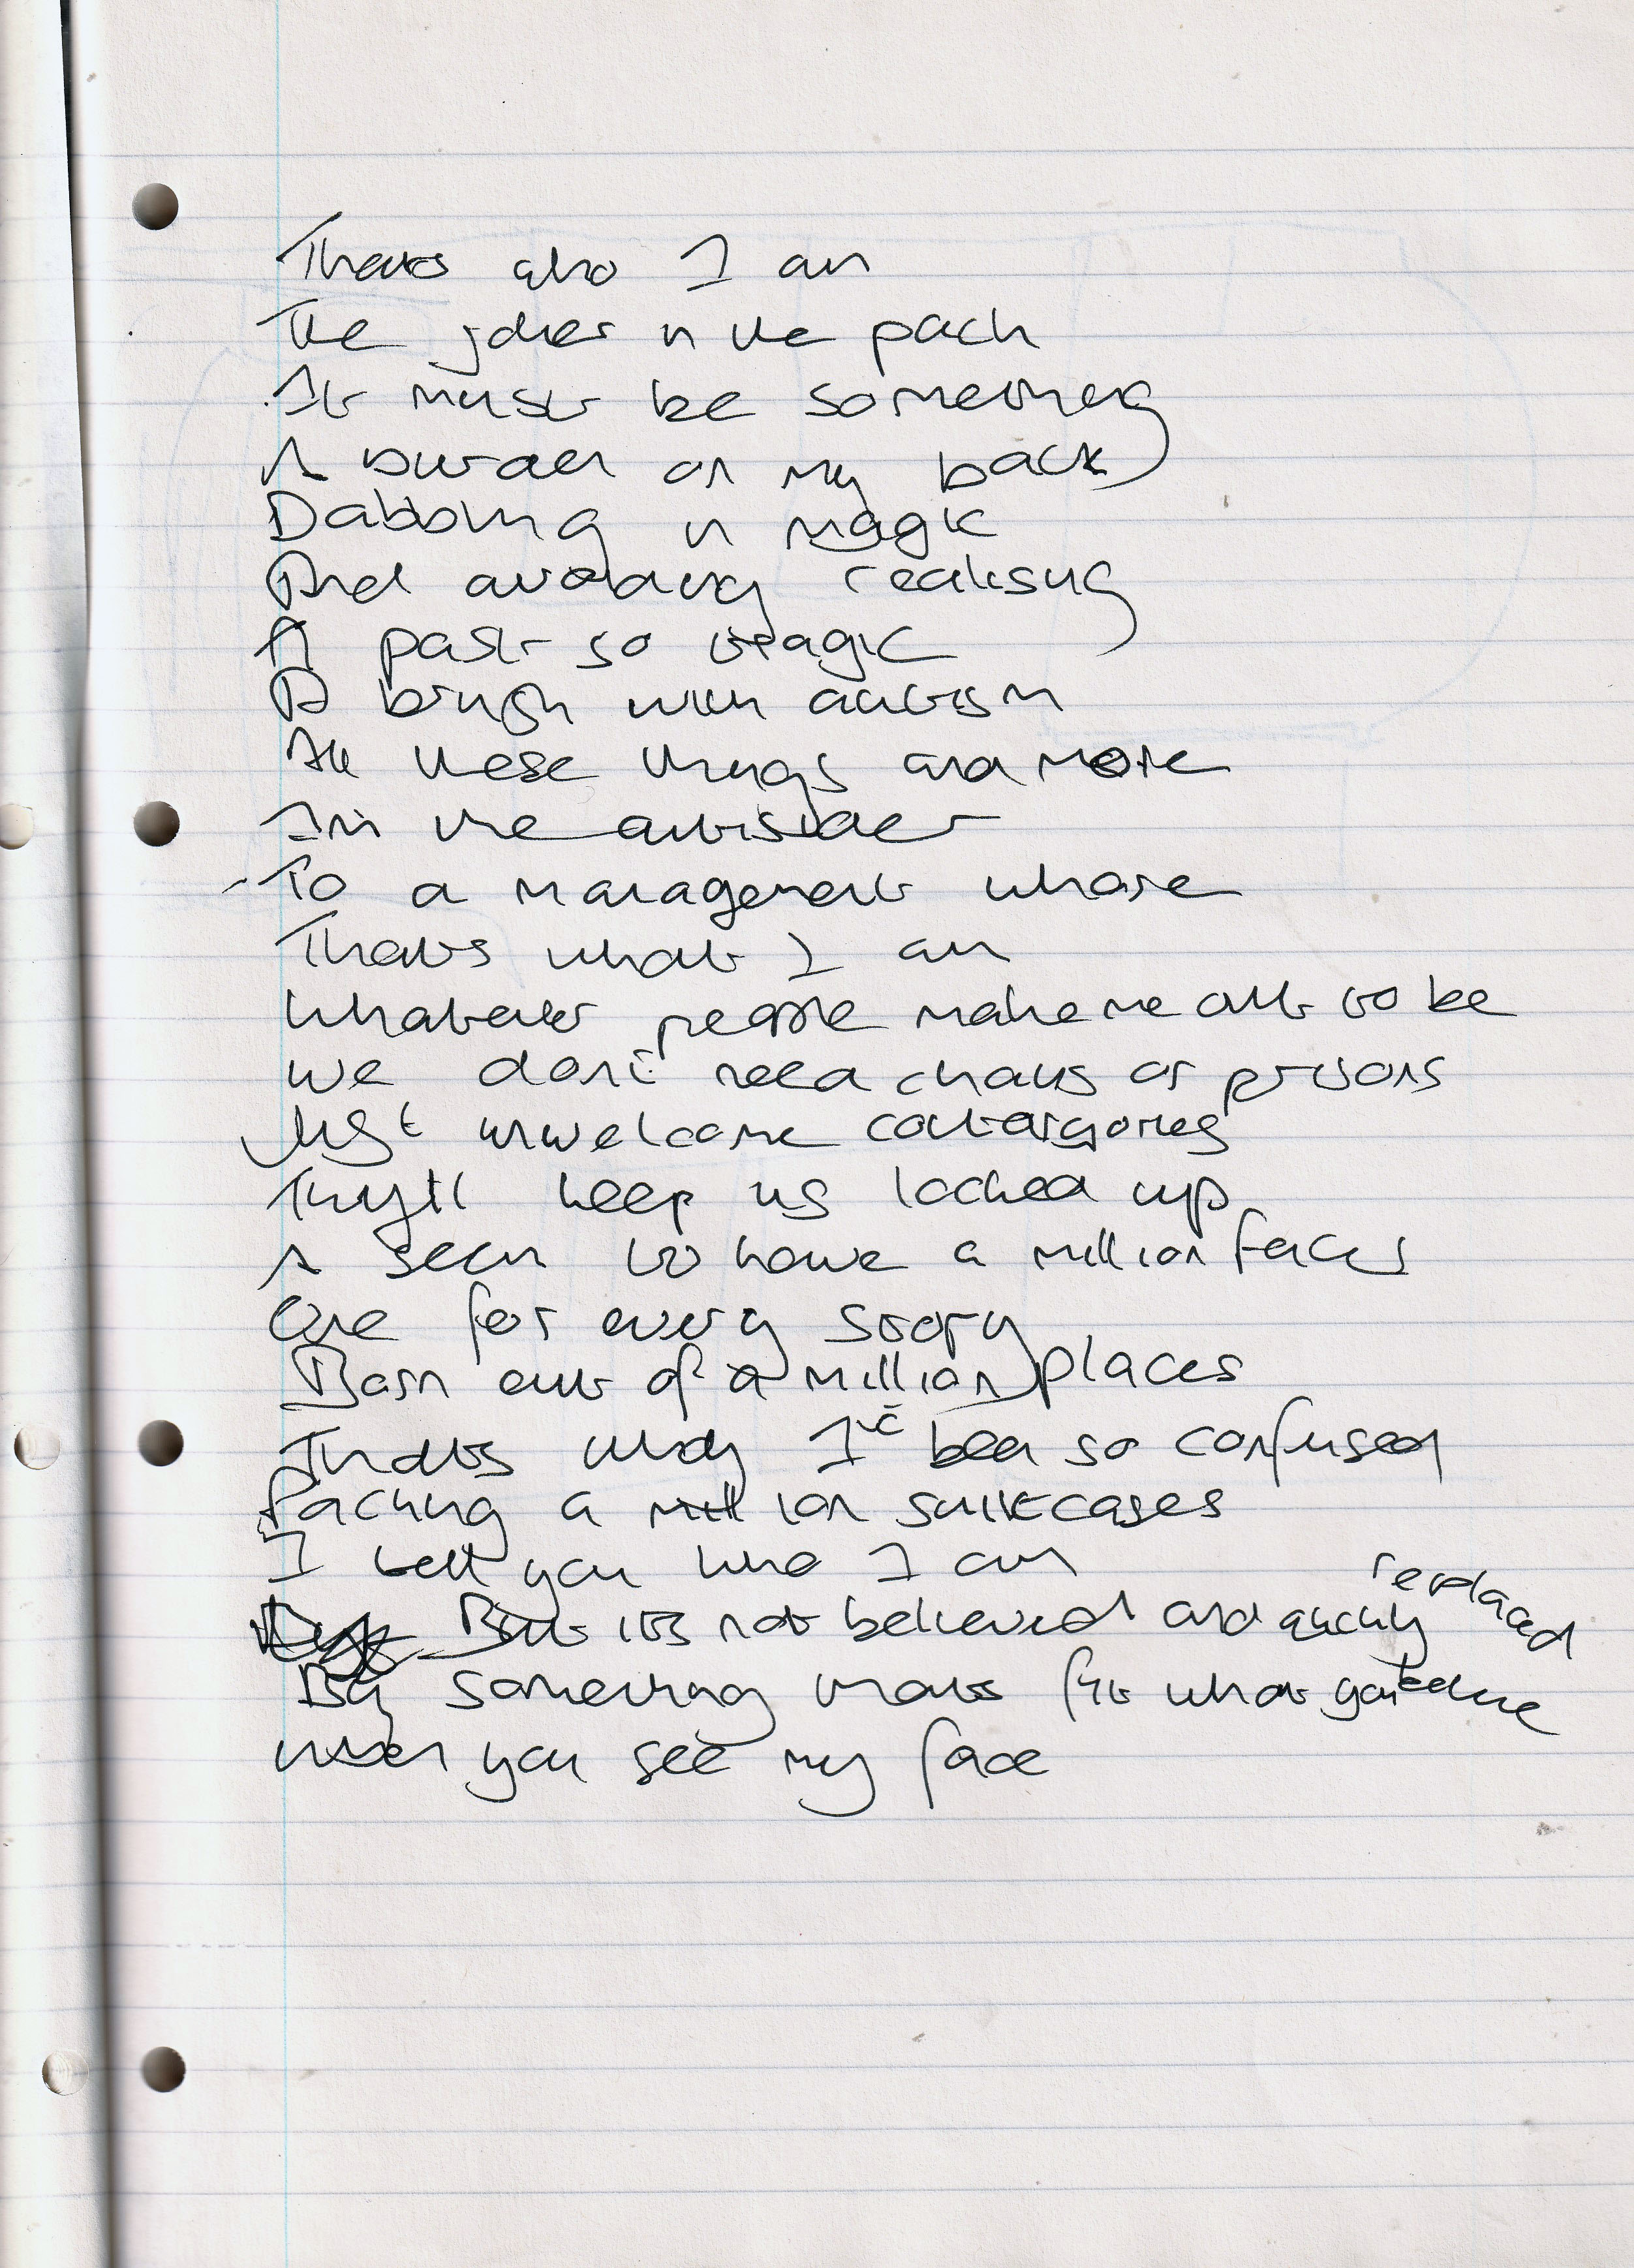 Thats who I am
The joker in the pack
It must be something
A burden on my back
Dabbling in magic
And avoiding realising
A past so tragic
A brush with autism
All these things and more
I'm the outsider
To a management whore
Thats what I am
Whatever people make me out to be
We don't need chains or prisons
Just unwelcome catargories
They'll keep us locked up
I seem to have a million faces
One for every story
Born out of a million places
Thats why I've been so confused
Packing a million suitcases
I tell you who I am
But its not believed and quickly replaced
By something thats fit what you believe
When you see my face